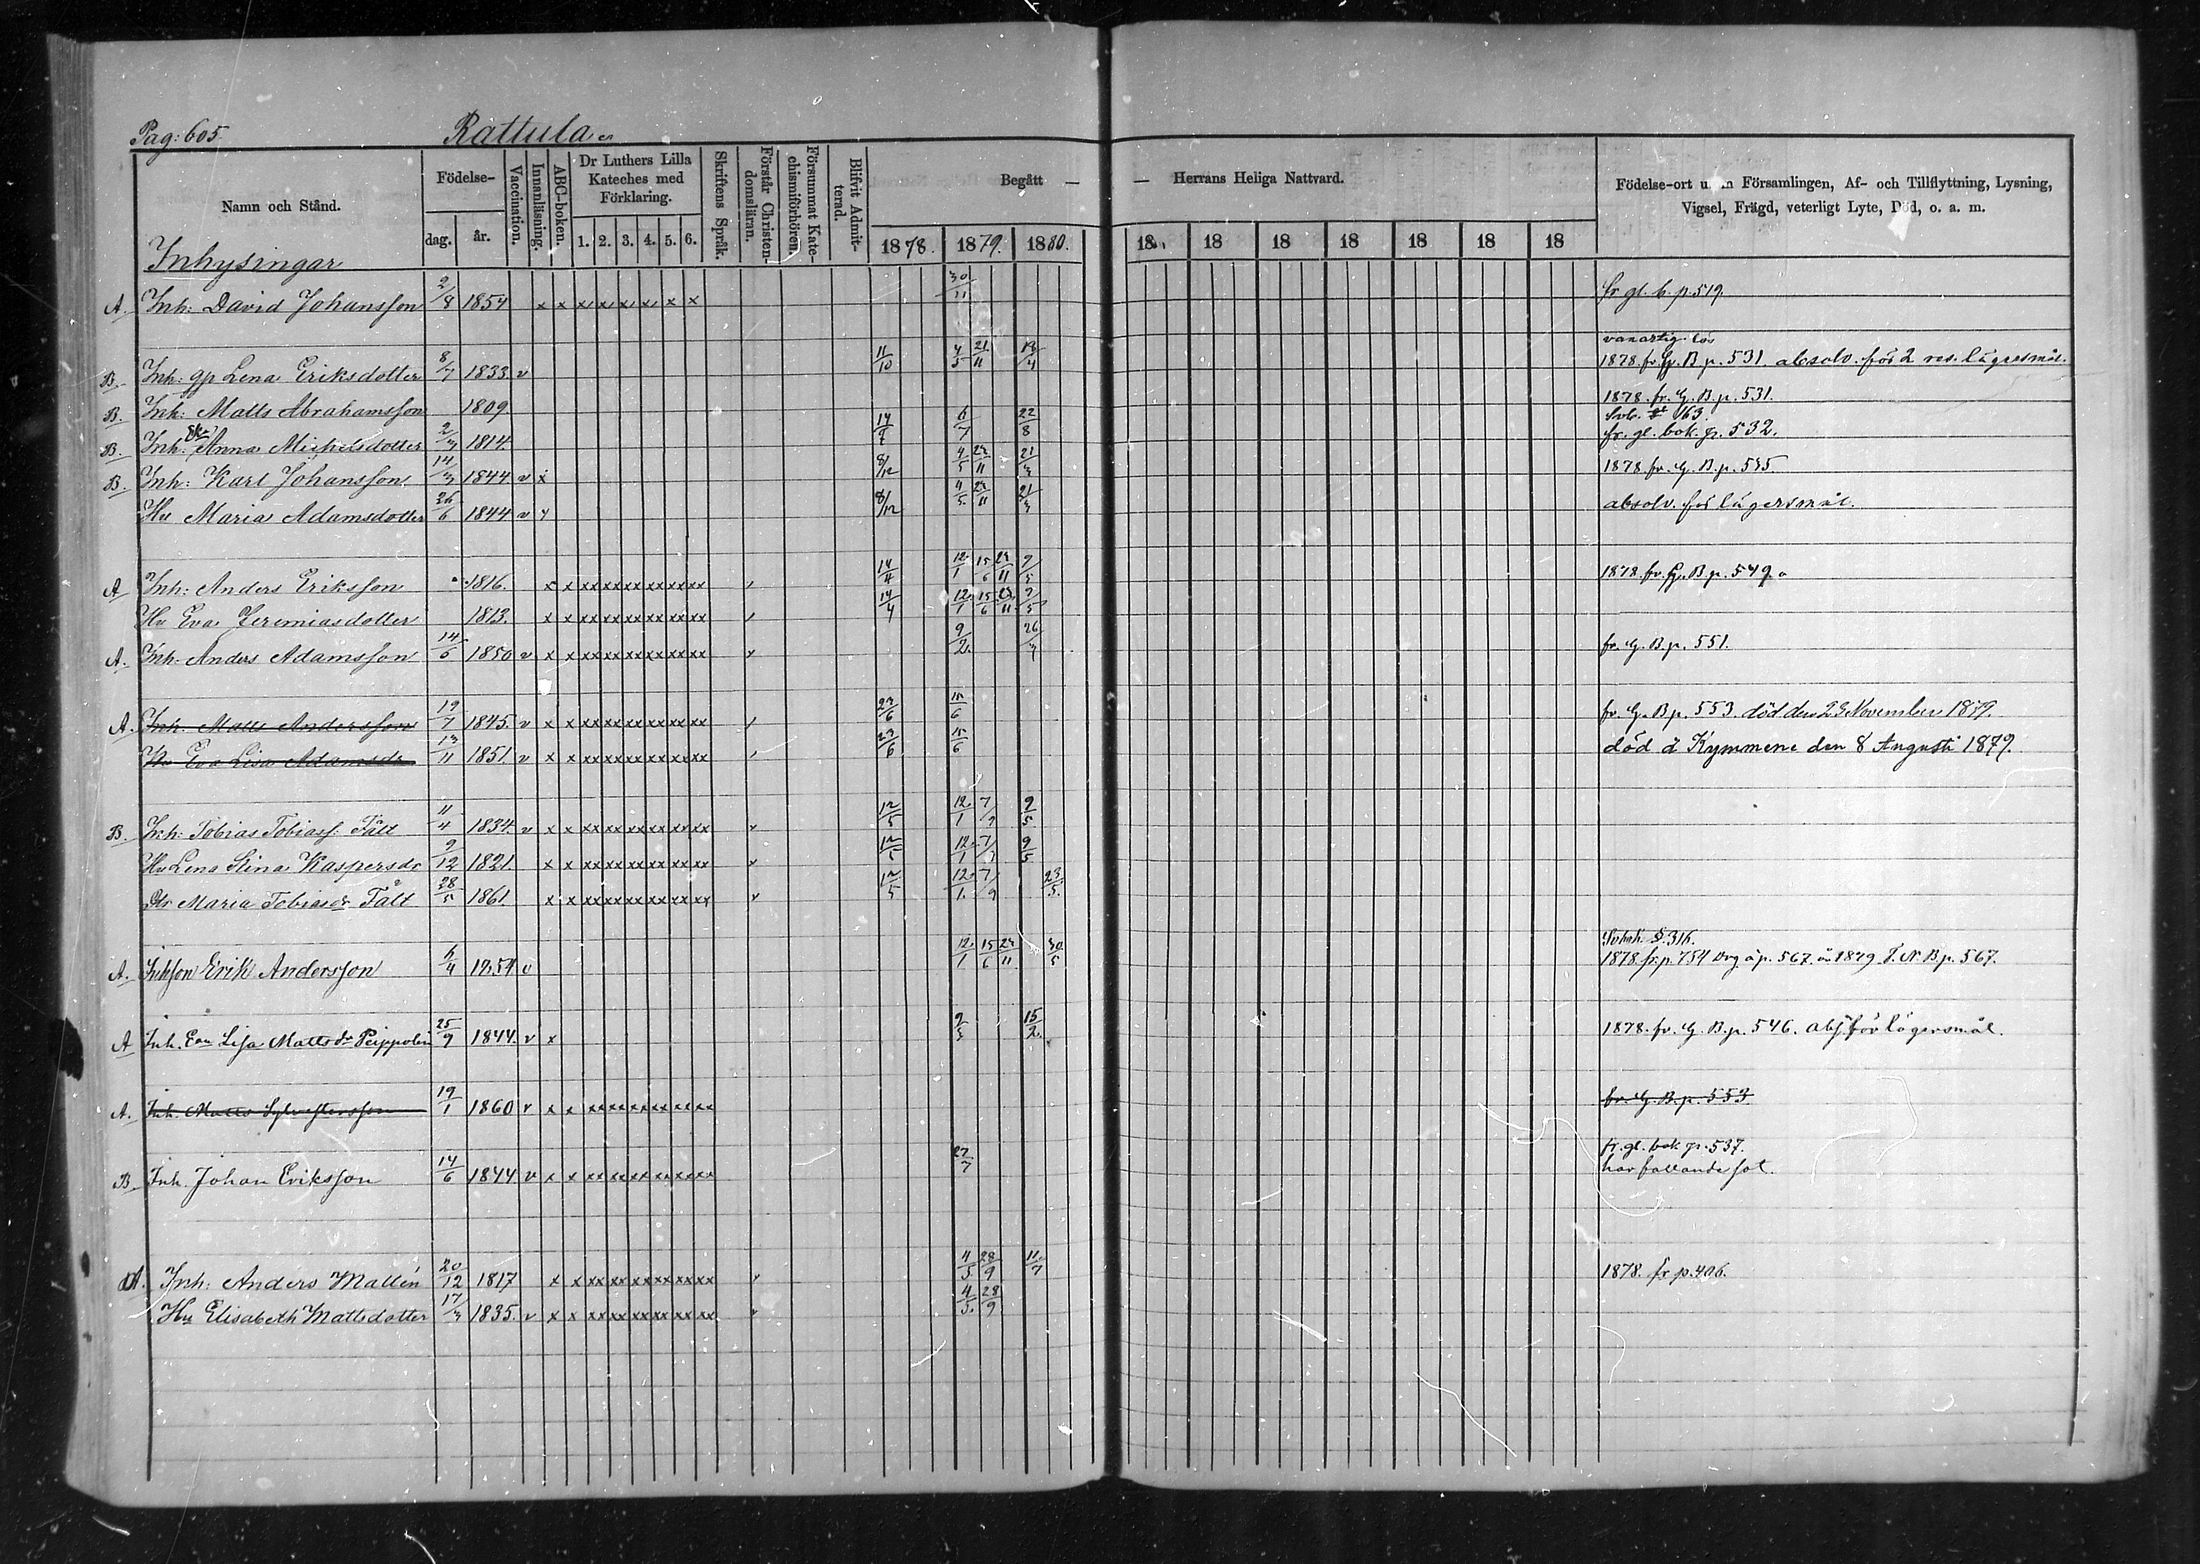 Pag: 605. Rattula
Namn och Stånd. Födelse- dag. år. Vaccination. Innanläsning. ABC-boken. Dr Luthers Lilla Kateches med Förklaring. 1. 2. 3. 4. 5. 6. Skriftens Språk. Förstår Christendomsläran. Försummat Katechismiförhören. Blifvit Admitterad. Begått — — Herrans Heliga Nattvard. Födelse-ort Församlingen, Af- och Tillflyttning, Lysning, Vigsel, Frägd, veterligt Lyte, Död, o. a. m.
1878. 1879. 1880. 18 18 18 18 18 18 18
Inhysingar
A. Inh: David Johansson 2/8 1854 x x x x x x x x 30/11 fr gl. b. p. 519.
vanartig
B. Inh: gp Lena Eriksdotter 8/7 1833 v 11/10 4/5 21/11 18/4 1878. fr. G. B. p. 531. absolv. för 2 res. lägersmål.
B. Inh: Matts Abrahamsson 1809 1878. fr. G. B. p. 531.
163.
B. Inh: Anna Michelsdotter 2/3 1814. 6/7 22/8 fr. gl. bok. p. 532.
B. Inh: Karl Johansson 14/3 1844 v x 8/12 4/5 23/11 21/3 1878 fr. G. B. p. 535
Hu Maria Adamsdotter 26/6 1844 v 8/12 4/5 23/11 21/3 absolv. för lägersmål.
A Inh: Anders Eriksson 1816. x x xx xx xx xx xx xx 14/4 12/1 15/6 23/11 9/5 1878. fr. G. B. p. 549.
Hu Eva Jeremiasdotter 1813. x x xx xx xx xx xx xx 14/4 12/1 15/6 23/11 9/5
A. Inh. Anders Adamsson 14/6 1850 v x x xx xx xx xx xx xx x 9/2 26/3 fr. G. B. p. 551.
A. Inh. Matts Andersson 19/7 1845. v x x xx xx xx xx xx xx 23/6 15/6 fr. G. B p. 553. död den 23 November 1879.
Hu Eva Lisa Adamsdr 13/11 1851. v x x xx xx xx xx xx xx 23/6 15/6 död å Kymmene den 8 Augusti 1879.
B. Inh: Tobias Tobiass. Tält 11/4 1834. v x x xx xx xx xx xx xx x 12/5 12/1 7/9 9/5
Hu Lena Stina Kaspersdr 9/12 1821. x x xx xx xx xx xx xx x 12/5 12/1 7/9 9/5
Dtr Maria Tobiasdr Tält 28/5 1861 x x xx xx xx xx xx xx x 12/5 12/1 7/9 23/5
§. 316.
A. Erik Andersson 6/4 1854 v 12/1 15/6 23/11 30/5 1878. fr. p. 754 p. 567. 1879 p. 567.
A Inh. Eva Lisa Mattsdr Peippolin 25/9 1844. v x 15/2 1878. fr. G. B. p. 546. för lägersmål.
A. Inh. Matts Sylvestersson 19/1 1860 v x x xx xx xx xx xx xx fr. G. B. p. 553.
fr. gl. bok p. 537.
B Inh. Johan Eriksson 14/6 1844 v x x xx xx xx xx xx xx 27/7 har fallandesot.
A. Inh: Anders Mallén 20/12 1817 x x xx xx xx xx xx xx 4/5 28/9 11/7 1878. fr p. 406.
Hu Elisabeth Mattsdotter 17/3 1835. v x x xx xx xx xx xx xx 4/5 28/9